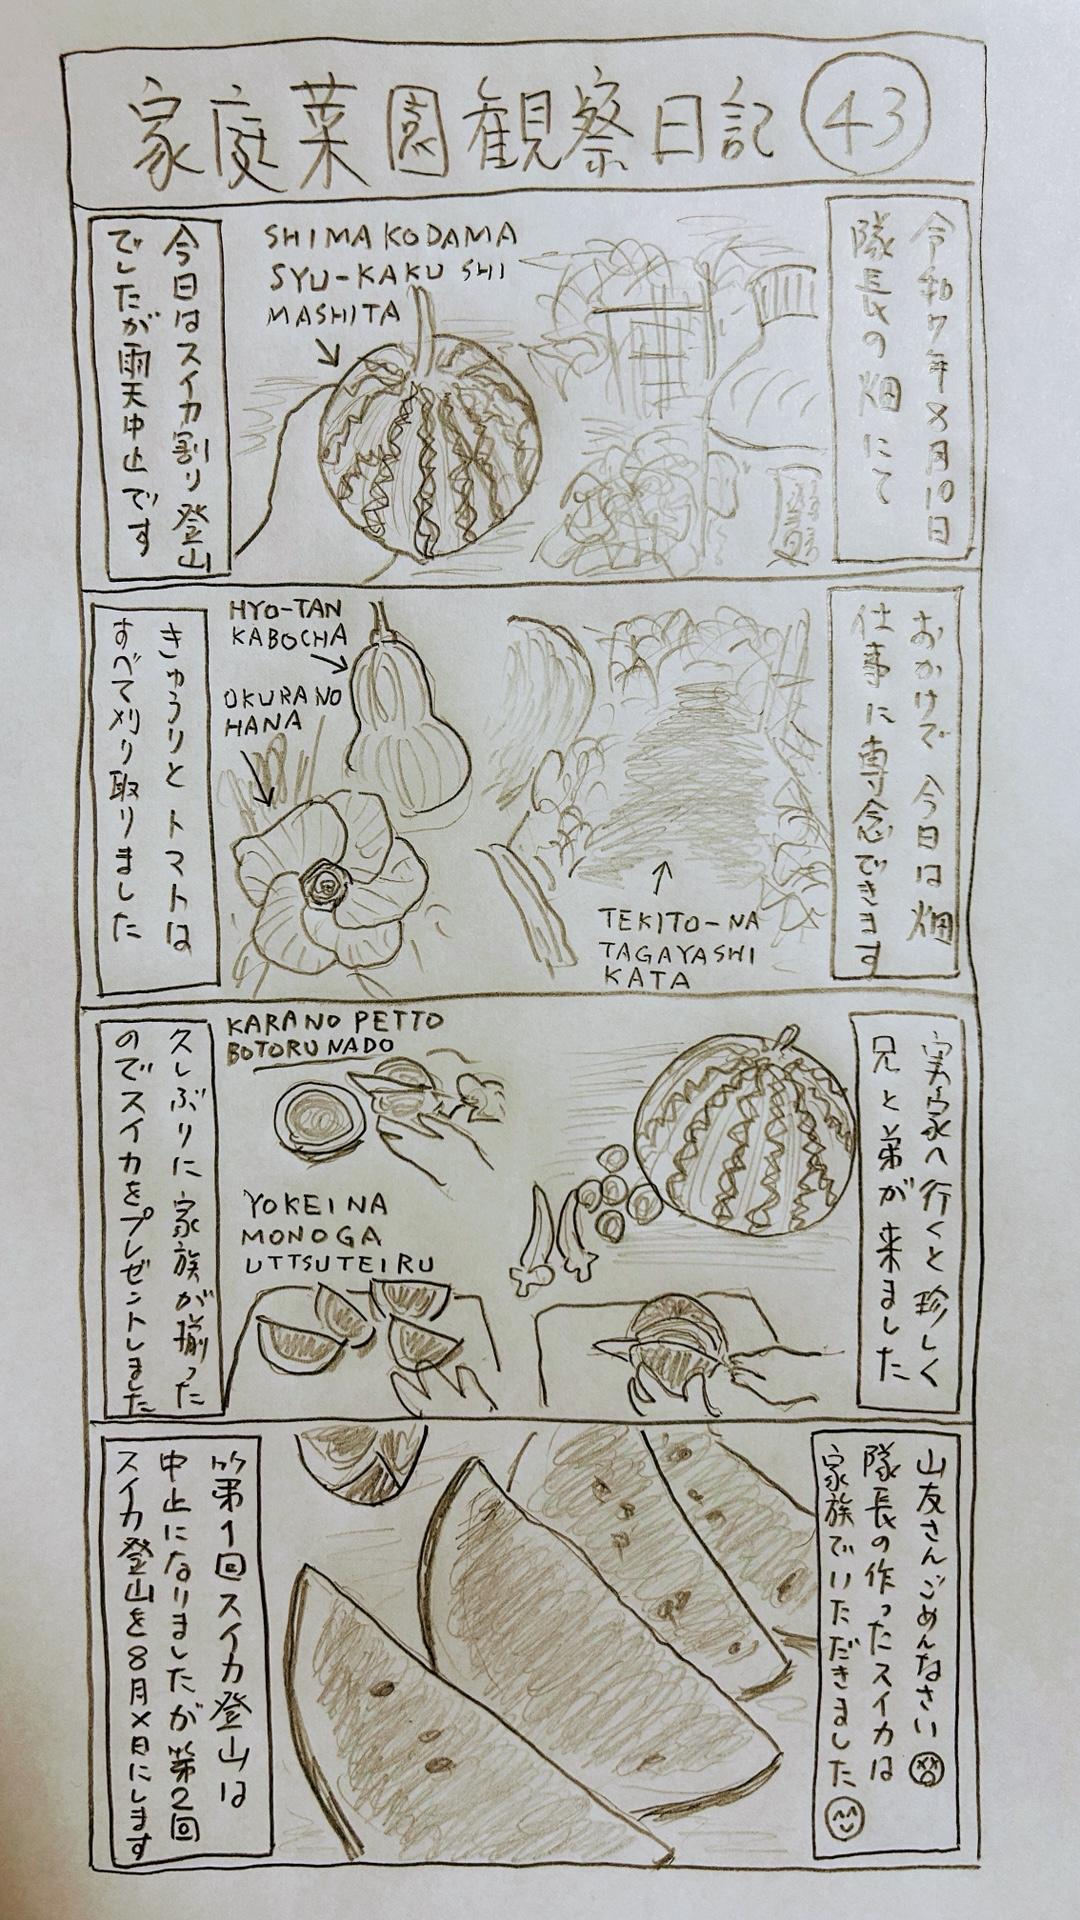 家庭菜園観察日記 43
令和7年8月10日
隊長の畑にて
SHIMA KODAMA
SYU-KAKU SHI
MASHITA
今日はスイカ割り登山
でしたが雨天中止です
おかげで今日は畑
仕事に専念できます
TEKITO-NA
TAGAYASHI
KATA
HYO-TAN
KABOCHA
OKURA NO
HANA
きゅうりとトマトは
すべて刈り取りました
実家へ行くと珍しく
兄と弟が来ました
KARANO PETTO
BOTORU NADO
YOKEI NA
MONO GA
UTTSUTEIRU
久しぶりに家族が揃った
のでスイカをプレゼントしました
山友さんごめんなさい
隊長の作ったスイカは
家族でいただきました
第1回スイカ登山は
中止になりましたが第2回
スイカ登山を8月×日にします